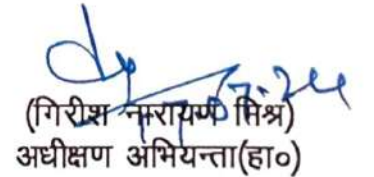 (गिरीश नारायण मिश्र)
अधीक्षण अभियन्ता(हा०)